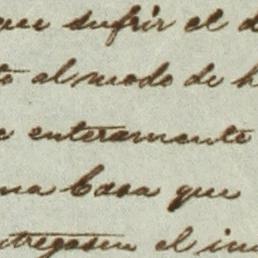 que sufrir el d
to al modo de h
a enteramente
na Casa que
ntregasen el in